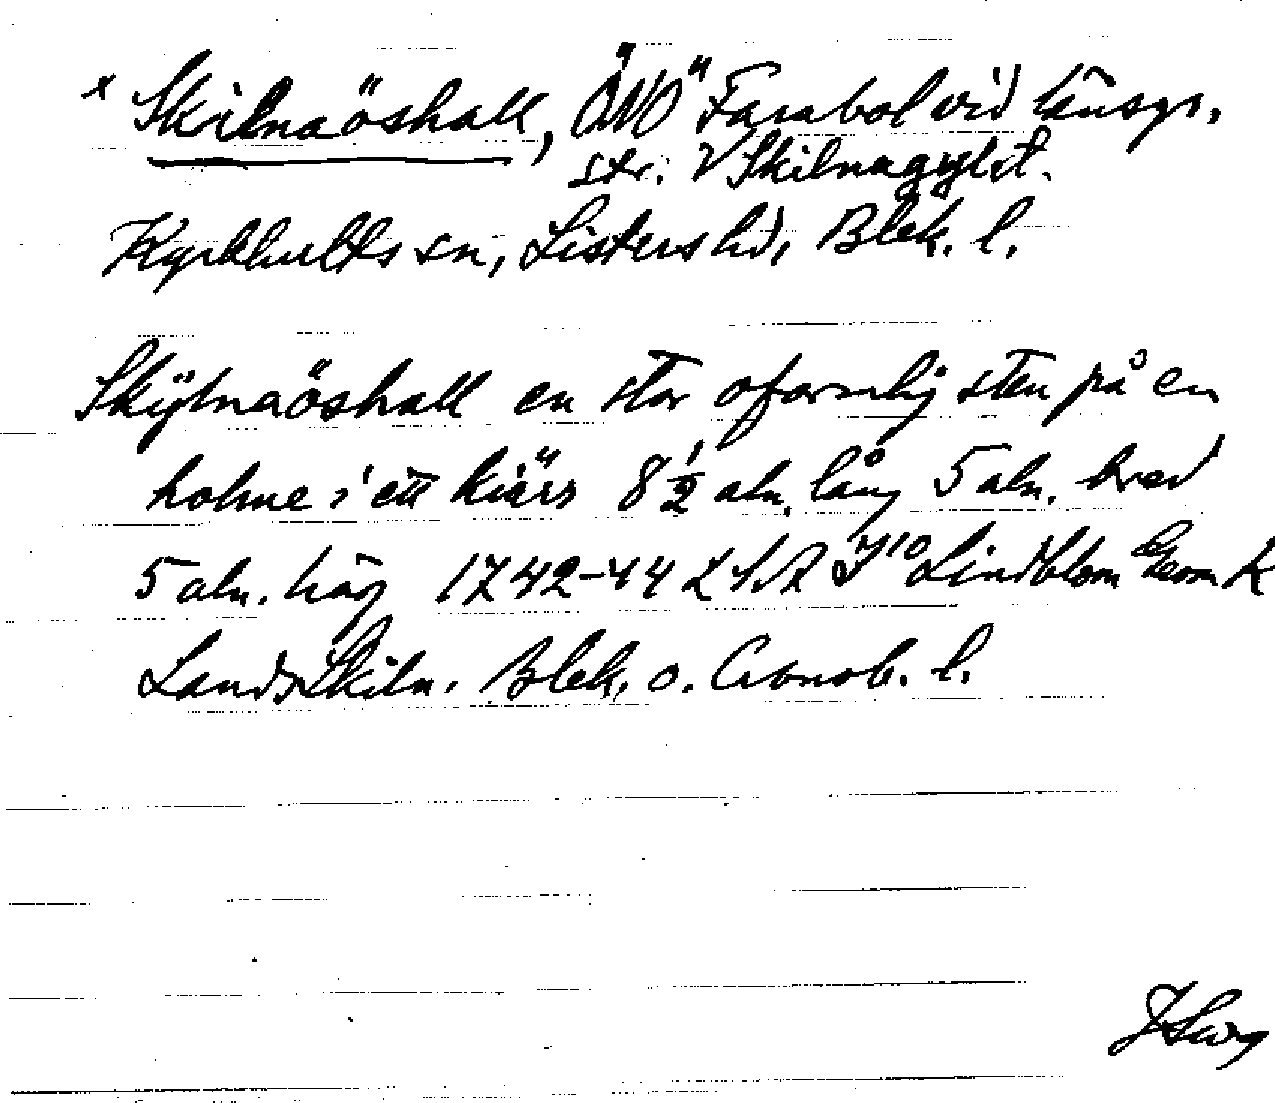 x Skilnaöshall, ÖNO Farabol vid länsgr.
str. V Skilnagylet.
Kyrkhults sn, Listers hd, Blek. l.
Skÿlnaöshall en stor oformlig sten på en
holme i ett kiärs 8 1/2 aln. lång 5 aln. bred
5 aln. hög 1742-44 LSA J 10 Lindblom Geom K
Lands Skiln. Blek. o. Cronob. l.